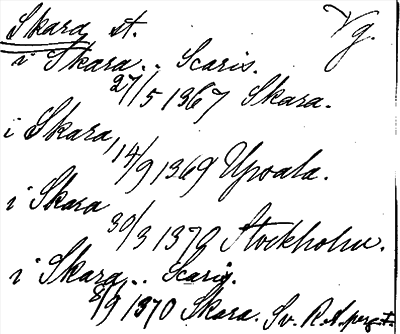 Skara st. Vg.
i Skara .. Scaris.
27/5 1367 Skara.
i Skara,
14/9 1369 Upsala.
i Skara
30/3 1370 Stockholm.
i Skara .. Scaris.
8/9 1370 Skara. Sv. R.A. perg.